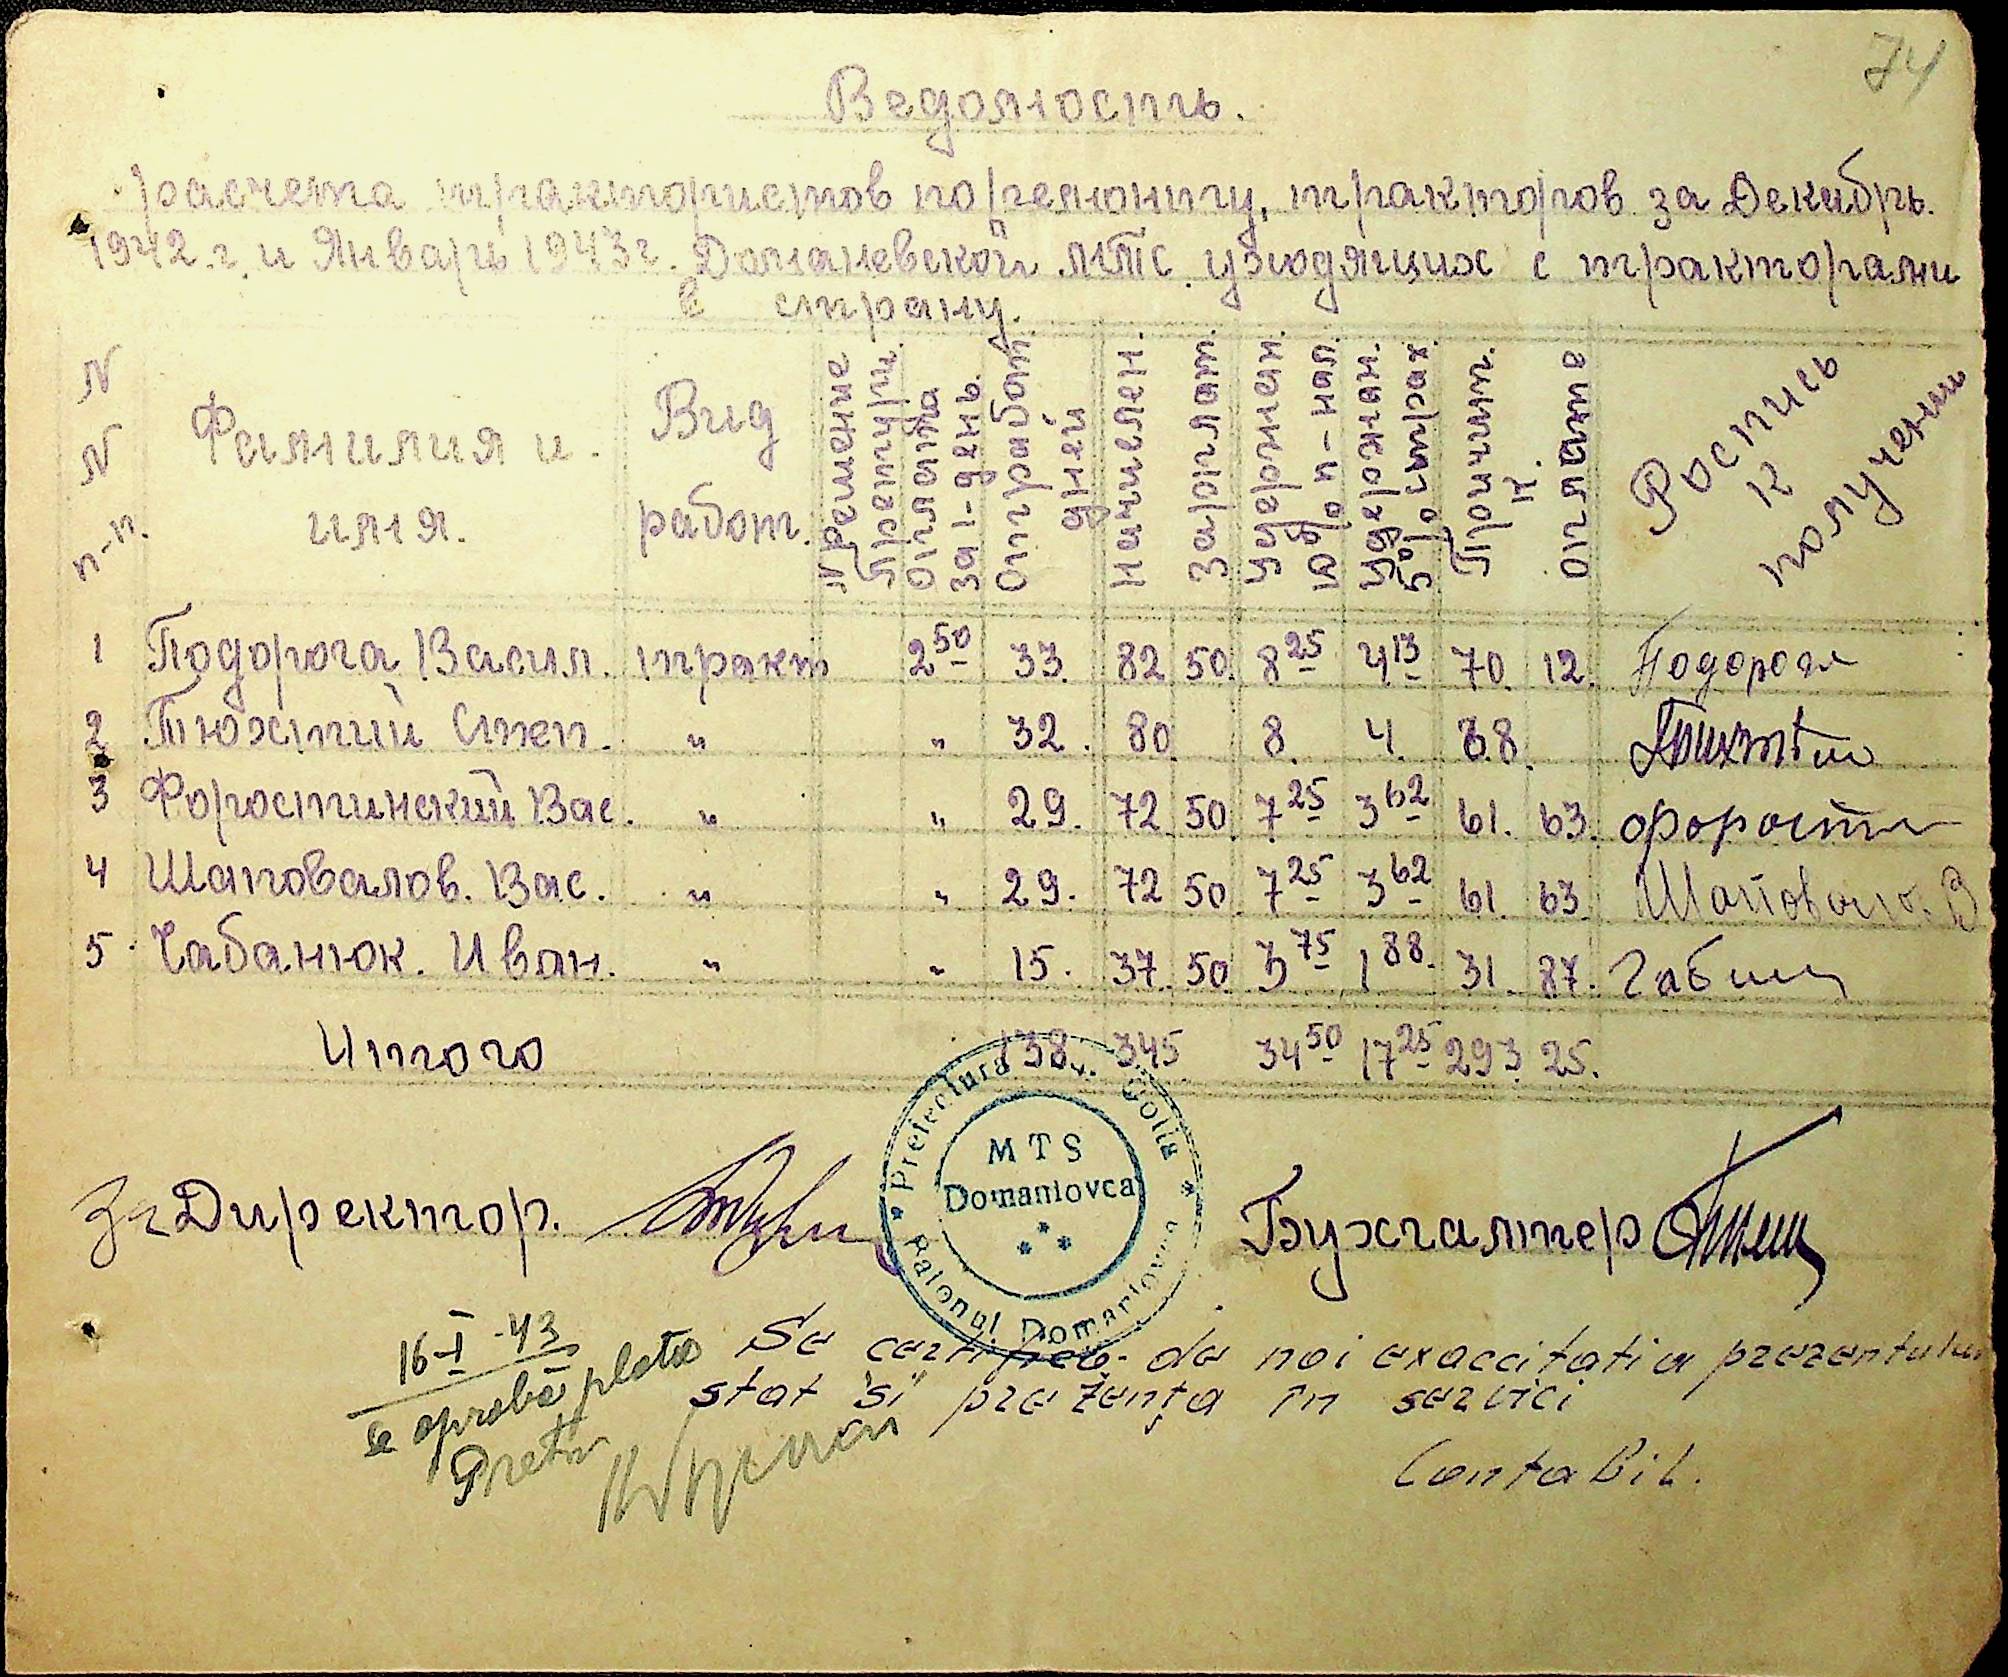 74
Ведомость.
расчета трактористов по ремонту, тракторов за Декабрь.
1942.г. и Январь 1943г. Доманевской МТС уходящих с тракторами
в страну.
N N п-п. Фамилия и имя. Вид работ. N Решение Оплата за 1-день. Отработ. дней Начислен. Зарплат. Удержан. 10% п-нал. Удержан. 5% страх Причит. к оплате Роспись к получении
1 Подорога Васил. тракт 2 50 33. 82 50. 8 25 4 13 70. 12. Подорога
2 Тюхтий Степ. " " 32. 80 8. 4. 68.
3 Форостинский Вас. " " 29. 72 50. 7 25 3 62 61. 63. Форости
4 Шаповалов. Вас. " " 29. 72 50. 7 25 3 62 61. 63. Шаповало. В
5 Чабанюк. Иван. " " 15. 37. 50. 3 75 1 88. 31. 87.
Итого 138. 345 34 50 17 25 293. 25.
Prefectura Jud. Golta
MTS
Domaniovca
Raionul Domaniovca
За Директор. Бухгалтер
16-I-43
se aprobă plata
Pretor
Se certifică de noi exaccitatia prezentului
stat și prezența în servici
Contabil.